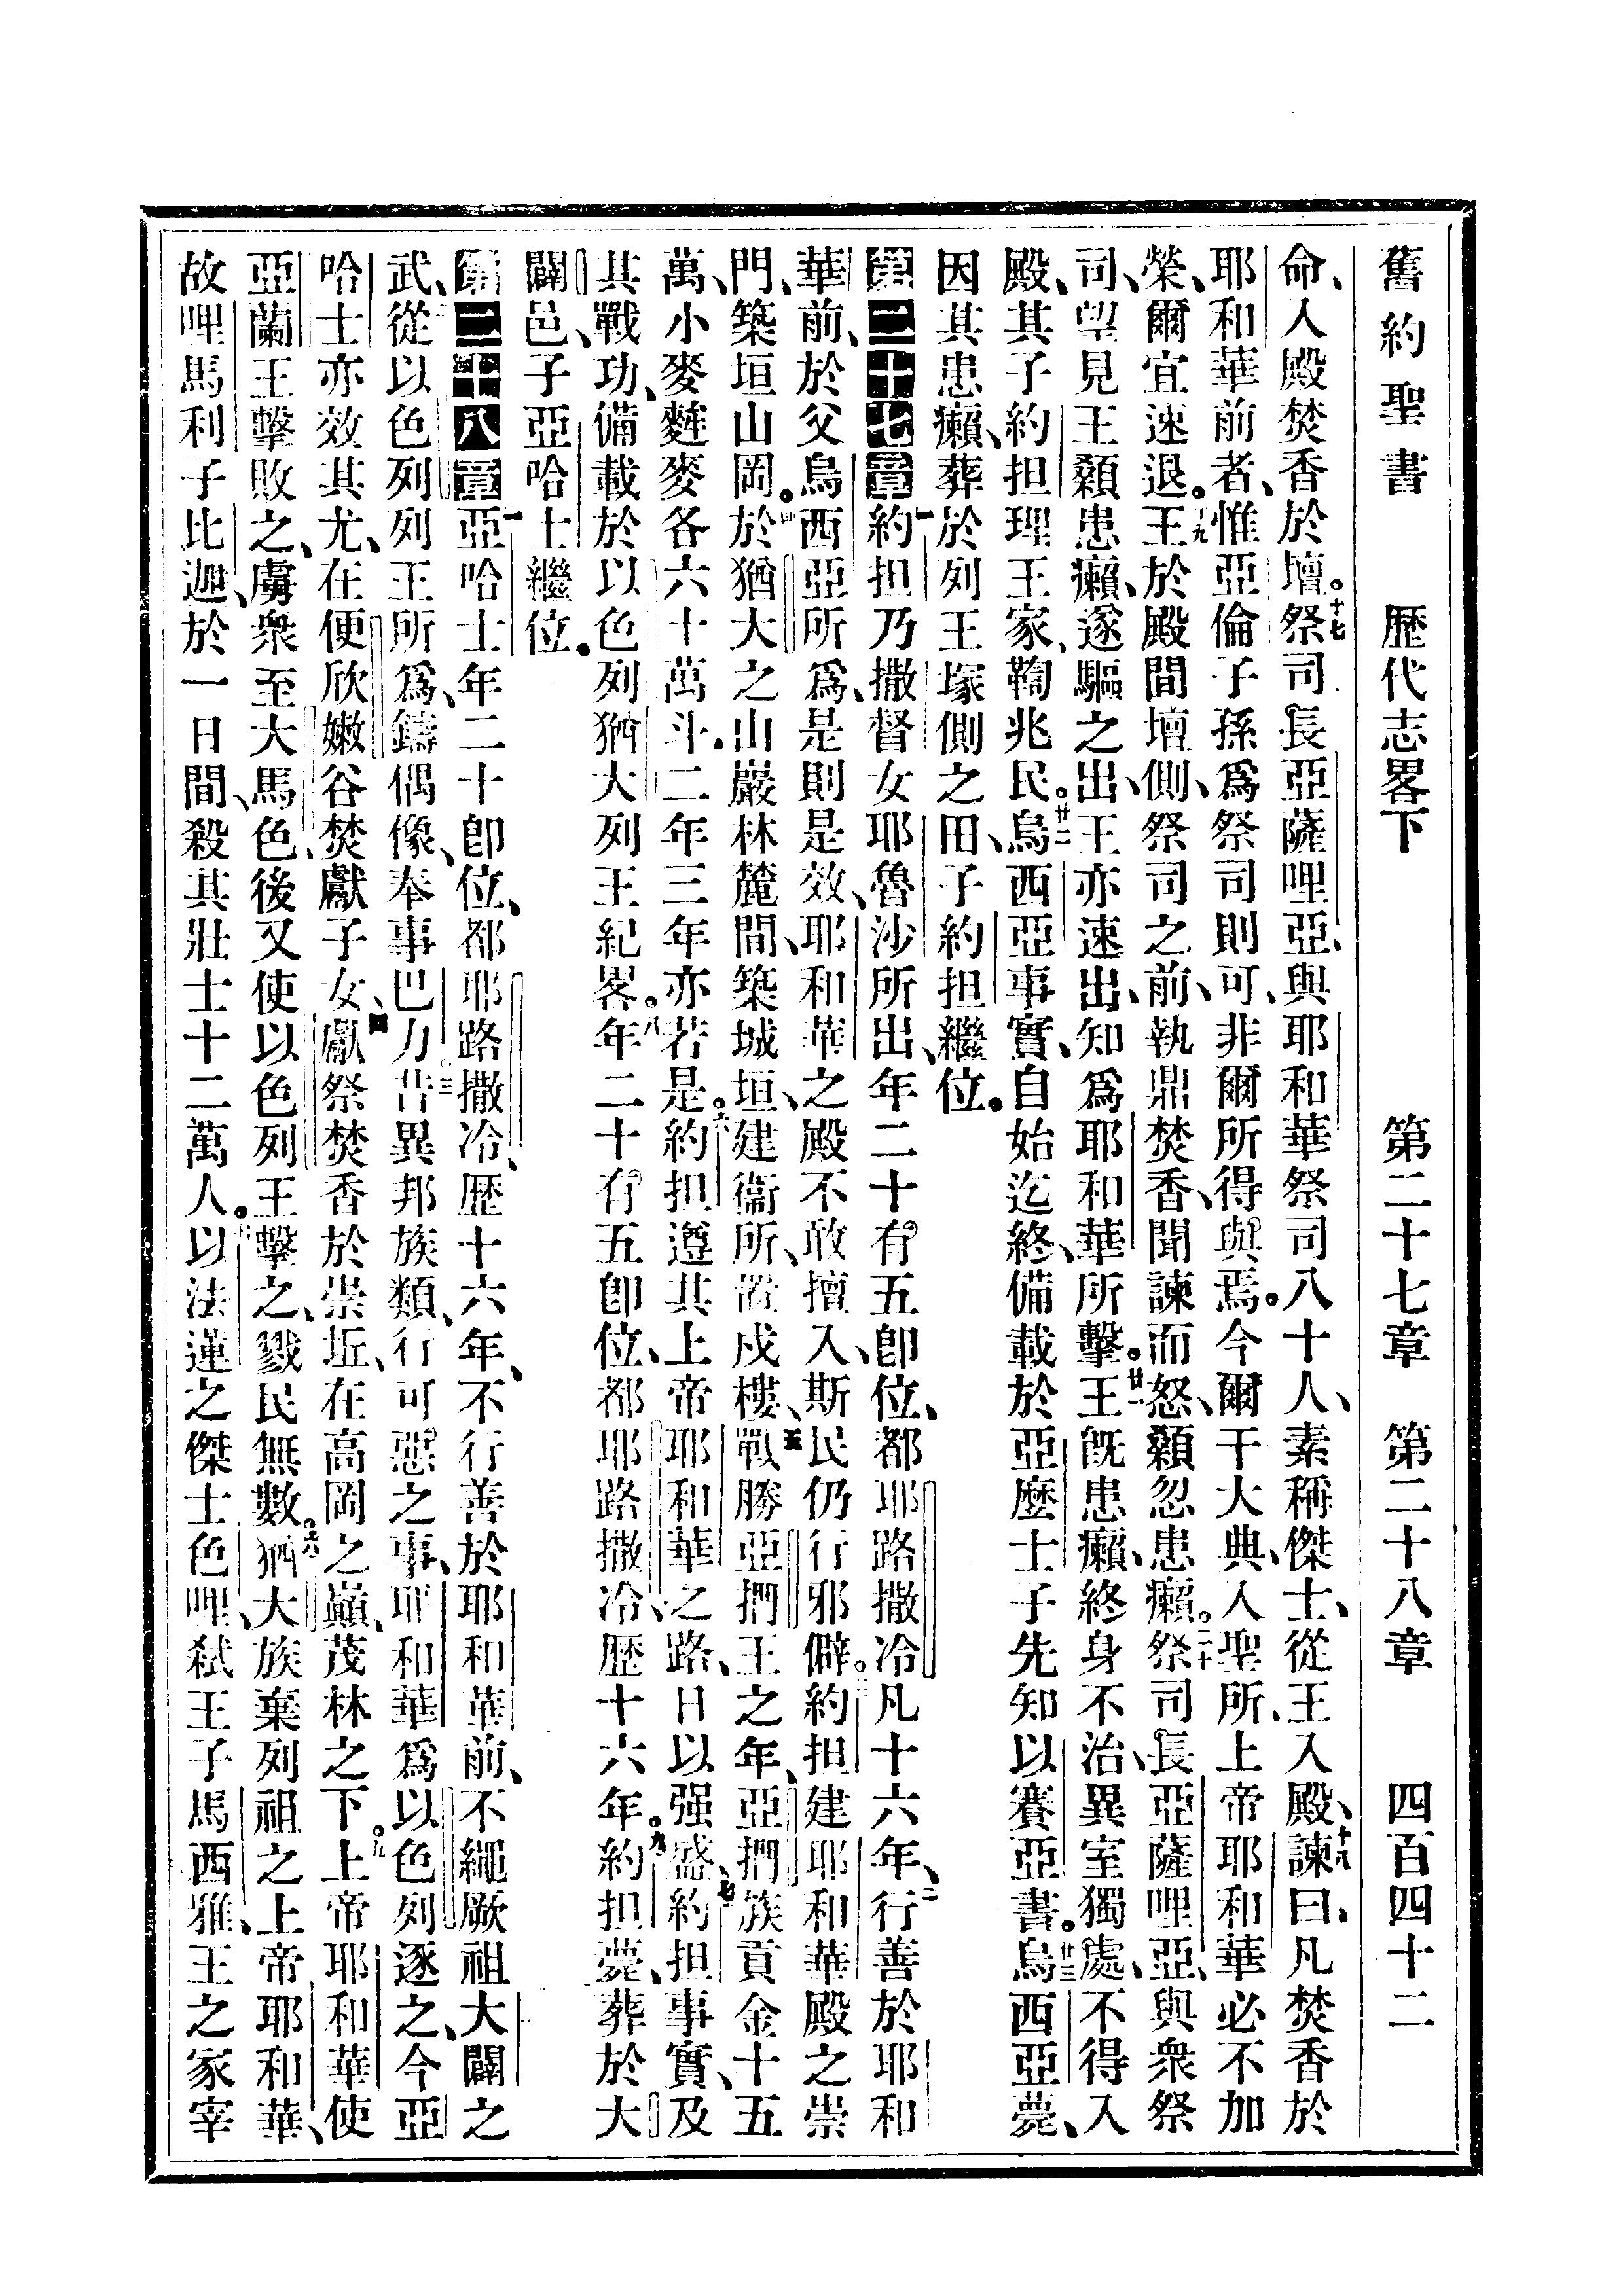 舊約聖書　歷代志畧下　第二十七章　第二十八章　四百四十二
命、入殿焚香於壇。十七祭司長亞薩哩亞、與耶和華祭司八十人、素稱傑士、從王入殿、十八諫曰、凡焚香於
耶和華前者、惟亞倫子孫爲祭司則可、非爾所得與焉。今爾干大典、入聖所、上帝耶和華必不加
榮、爾宜速退。十九王於殿間壇側、祭司之前、執鼎焚香、聞諫而怒、顙忽患癩。二十祭司長亞薩哩亞、與衆祭
司、望見王顙患癩、遂驅之出、王亦速出、知爲耶和華所擊。廿一王旣患癩、終身不治、異室獨處、不得入
殿、其子約担理王家、鞫兆民。廿二烏西亞事實、自始迄終、備載於亞麼士子先知以賽亞書。廿三烏西亞薨、
因其患癩、葬於列王塚側之田、子約担繼位。
第二十七章一約担乃撒督女耶魯沙所出、年二十有五卽位、都耶路撒冷凡十六年、二行善於耶和
華前、於父烏西亞所爲、是則是效、耶和華之殿不敢擅入、斯民仍行邪僻。三約担建耶和華殿之崇
門、築垣山岡。四於猶大之山巖林麓間、築城垣、建衞所、置戍樓、五戰勝亞捫王之年、亞捫族貢金十五
萬、小麥麰麥各六十萬斗。二年三年亦若是。六約担遵其上帝耶和華之路、日以强盛、七約担事實、及
其戰功、備載於以色列猶大列王紀畧。八年二十有五卽位、都耶路撒冷、歷十六年。九約担薨、葬於大
闢邑、子亞哈士繼位。
第二十八章一亞哈士年二十卽位、都耶路撒冷、歷十六年、不行善於耶和華前、不繩厥祖大闢之
武、二從以色列列王所爲、鑄偶像、奉事巴力。三昔異邦族類、行可惡之事、耶和華爲以色列逐之、今亞
哈士亦效其尤、在便欣嫩谷焚獻子女、四獻祭焚香於崇坵、在高岡之巔、茂林之下。五上帝耶和華使
亞蘭王擊敗之、虜衆至大馬色、後又使以色列王擊之、戮民無數。六猶大族棄列祖之上帝耶和華、
故哩馬利子比迦、於一日間、殺其壯士十二萬人。七以法蓮之傑士色哩、弒王子馬西雅、王之家宰